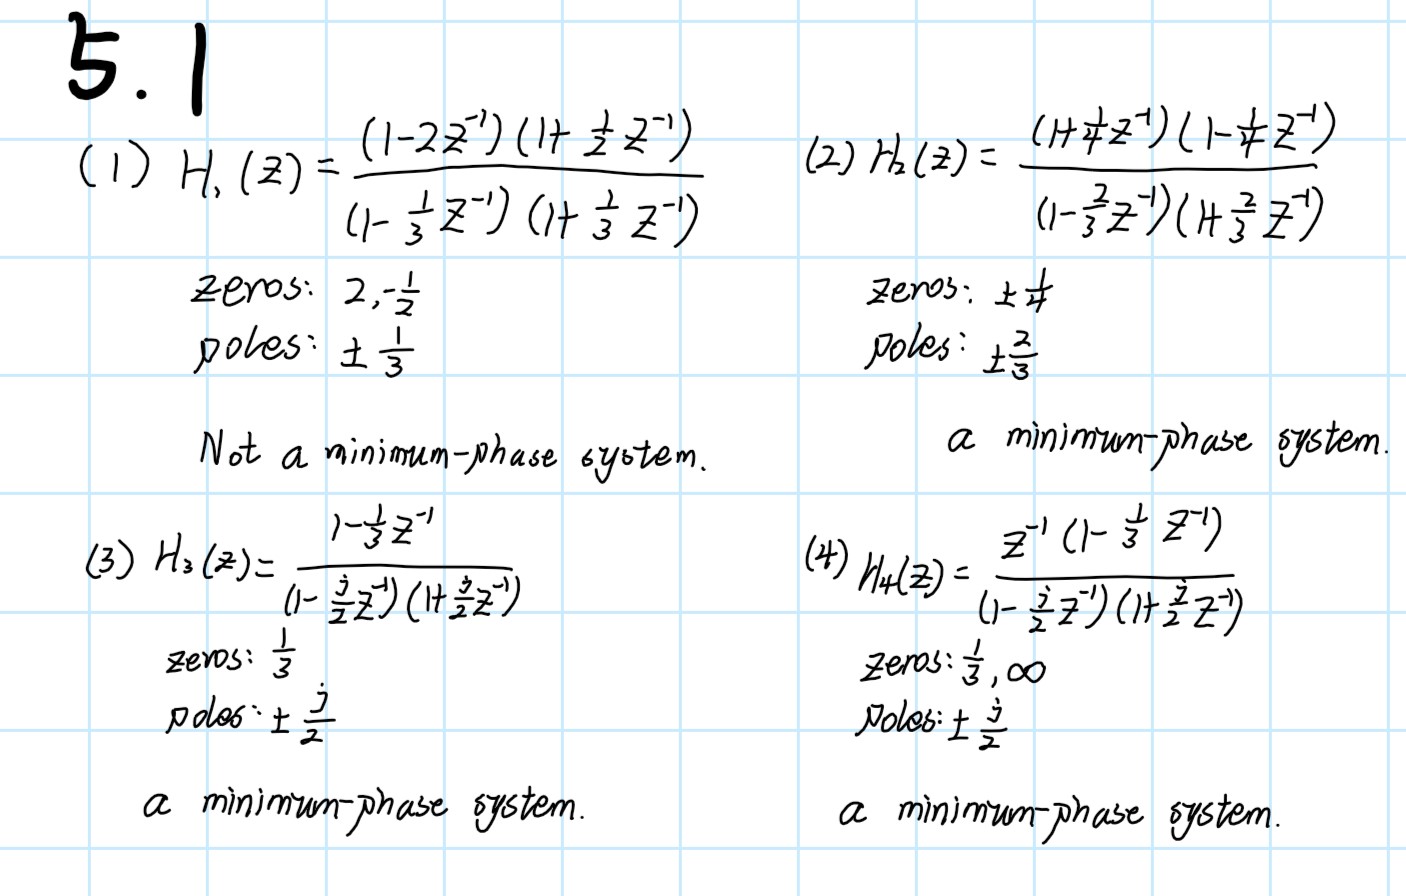 5.1
(1) H₁(z) = (1-2z⁻¹)(1+ 1/2 z⁻¹) / (1- 1/3 z⁻¹)(1+ 1/3 z⁻¹)
zeros: 2, -1/2
poles: ± 1/3
Not a minimum-phase system.
(2) H₂(z) = (1+ 1/4 z⁻¹)(1- 1/4 z⁻¹) / (1- 2/3 z⁻¹)(1+ 2/3 z⁻¹)
zeros: ± 1/4
poles: ± 2/3
a minimum-phase system.
(3) H₃(z) = 1- 1/3 z⁻¹ / (1- j/2 z⁻¹)(1+ j/2 z⁻¹)
zeros: 1/3
poles: ± j/2
a minimum-phase system.
(4) H₄(z) = z⁻¹(1- 1/3 z⁻¹) / (1- j/2 z⁻¹)(1+ j/2 z⁻¹)
zeros: 1/3, ∞
poles: ± j/2
a minimum-phase system.